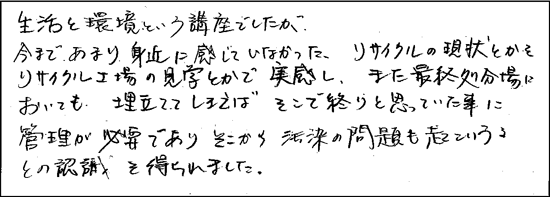 生活と環境という講座でしたが、
今まであまり身近に感じていなかった、リサイクルの現状とかを
リサイクル工場の見学とかで実感し、また最終処分場に
おいても 埋立ててしまえば そこで終りと思っていた事に
管理が必要であり そこから汚染の問題も起こっている
との認識を得られました。